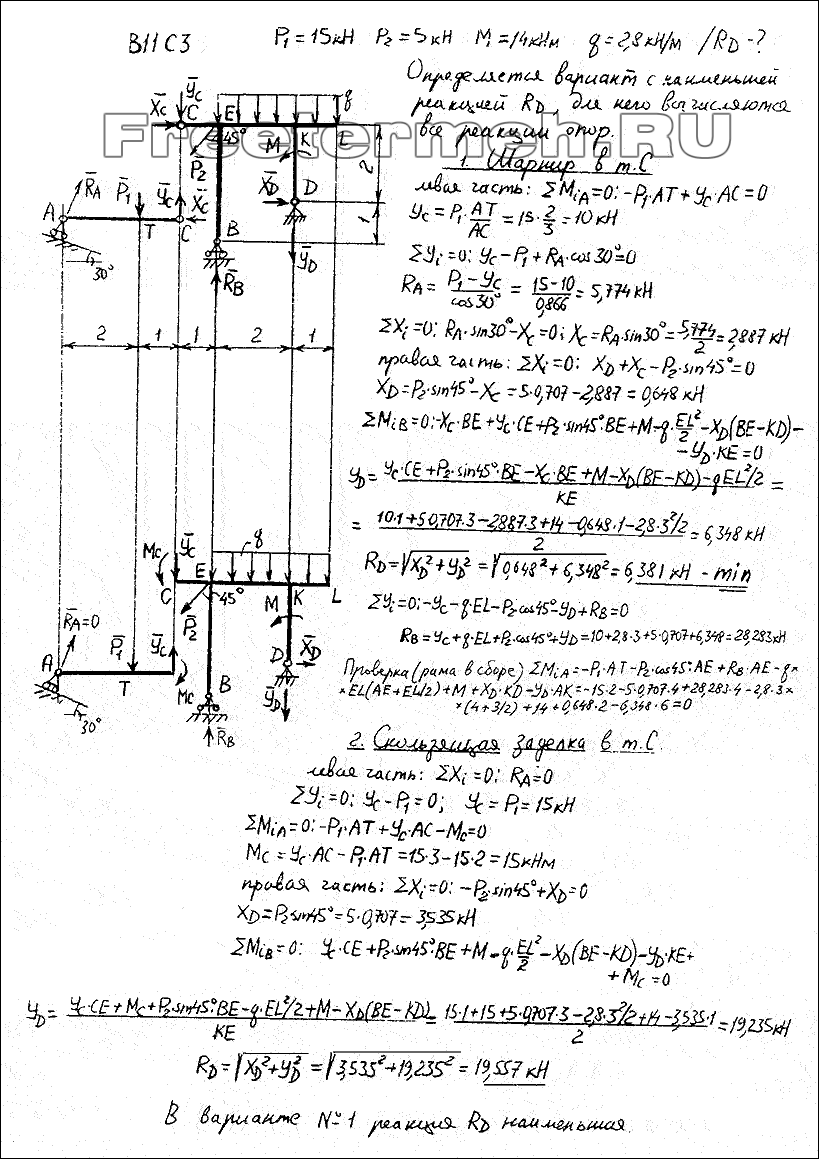 В11 С3
P₁=15кН P₂=5кН M=14кНм q=2,8кН/м /R_D-?
Определяется вариант с наименьшей
реакцией R_D, для него вычисляются
все реакции опор.
Freetermeh.RU
1. Шарнир в т.С
левая часть: ΣM_iA=0: -P₁·AT+Y_C·AC=0
Y_C=P₁·AT/AC=15·2/3=10кН
ΣY_i=0: Y_C-P₁+R_A·cos30°=0
R_A=(P₁-Y_C)/cos30°=(15-10)/0,866=5,774кН
ΣX_i=0: R_A·sin30°-X_C=0; X_C=R_A·sin30°=5,774/2=2,887кН
правая часть: ΣX_i=0: X_D+X_C-P₂·sin45°=0
X_D=P₂·sin45°-X_C=5·0,707-2,887=0,648кН
ΣM_iB=0:-X_C·BE+Y_C·CE+P₂·sin45°·BE+M-q·EL²/2-X_D(BE-KD)-
-Y_D·KE=0
Y_D=(Y_C·CE+P₂·sin45°·BE-X_C·BE+M-X_D(BE-KD)-qEL²/2)/KE=
=(10·1+5·0,707·3-2,887·3+14-0,648·1-2,8·3²/2)/2=6,348кН
R_D=√(X_D²+Y_D²)=√(0,648²+6,348²)=6,381кН-min
ΣY_i=0:-Y_C-q·EL-P₂·cos45°-Y_D+R_B=0
R_B=Y_C+q·EL+P₂·cos45°+Y_D=10+2,8·3+5·0,707+6,348=28,283кН
Проверка(рама в сборе) ΣM_iA=-P₁·AT-P₂·cos45°·AE+R_B·AE-q×
×EL(AE+EL/2)+M+X_D·KD-Y_D·AK=-15·2-5·0,707·4+28,283·4-2,8·3×
×(4+3/2)+14+0,648·2-6,348·6=0
X̄_C Ȳ_C C E q
45° M K L
P̄₂ 2
R̄_A P̄₁ Ȳ_C X̄_D D
A X̄_C
T C B 1
Ȳ_D
30° R̄_B
2 1 1 2 1
M_C Ȳ_C q
E
C 45° M K L
P̄₂
R̄_A=0 P̄₁ Ȳ_C D X̄_D
A
T M_C B Ȳ_D
30°
R̄_B
2. Скользящая заделка в т.С.
левая часть: ΣX_i=0: R_A=0
ΣY_i=0: Y_C-P₁=0; Y_C=P₁=15кН
ΣM_iA=0:-P₁·AT+Y_C·AC-M_C=0
M_C=Y_C·AC-P₁·AT=15·3-15·2=15кНм
правая часть: ΣX_i=0: -P₂·sin45°+X_D=0
X_D=P₂·sin45°=5·0,707=3,535кН
ΣM_iB=0: Y_C·CE+P₂·sin45°·BE+M-q·EL²/2-X_D(BE-KD)-Y_D·KE+
+M_C=0
Y_D=(Y_C·CE+M_C+P₂·sin45°·BE-q·EL²/2+M-X_D(BE-KD))/KE=(15·1+15+5·0,707·3-2,8·3²/2+14-3,535·1)/2=19,235кН
R_D=√(X_D²+Y_D²)=√(3,535²+19,235²)=19,557кН
В варианте №1 реакция R_D наименьшая.